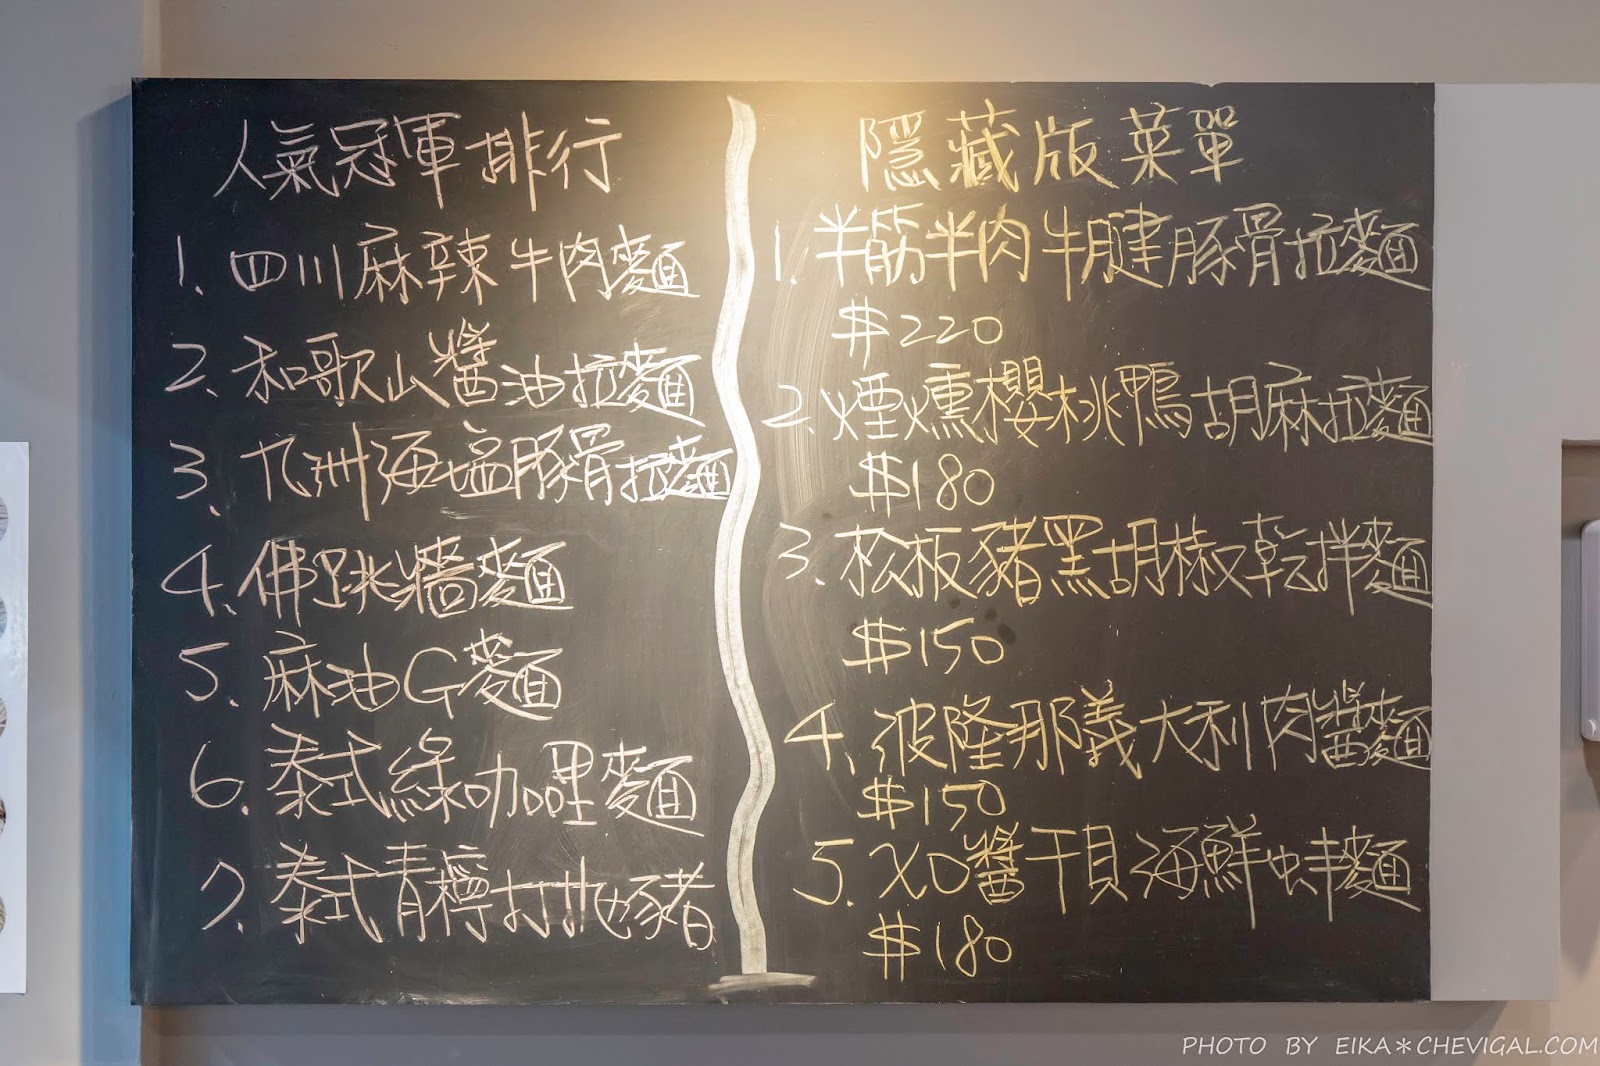 人氣冠軍排行
1. 四川麻辣牛肉麵
2. 和歌山醬油拉麵
3. 九洲海塩豚骨拉麵
4. 佛跳牆麵
5. 麻油G麵
6. 泰式綠咖哩麵
7. 泰式青檸打拋豬
隱藏版菜單
1. 半筋半肉牛腱豚骨拉麵
$220
2. 煙燻櫻桃鴨胡麻拉麵
$180
3. 松板豬黑胡椒乾拌麵
$150
4. 波隆那義大利肉醬麵
$150
5. XO醬干貝海鮮拌麵
$180
PHOTO BY EIKA＊CHEVIGAL.COM